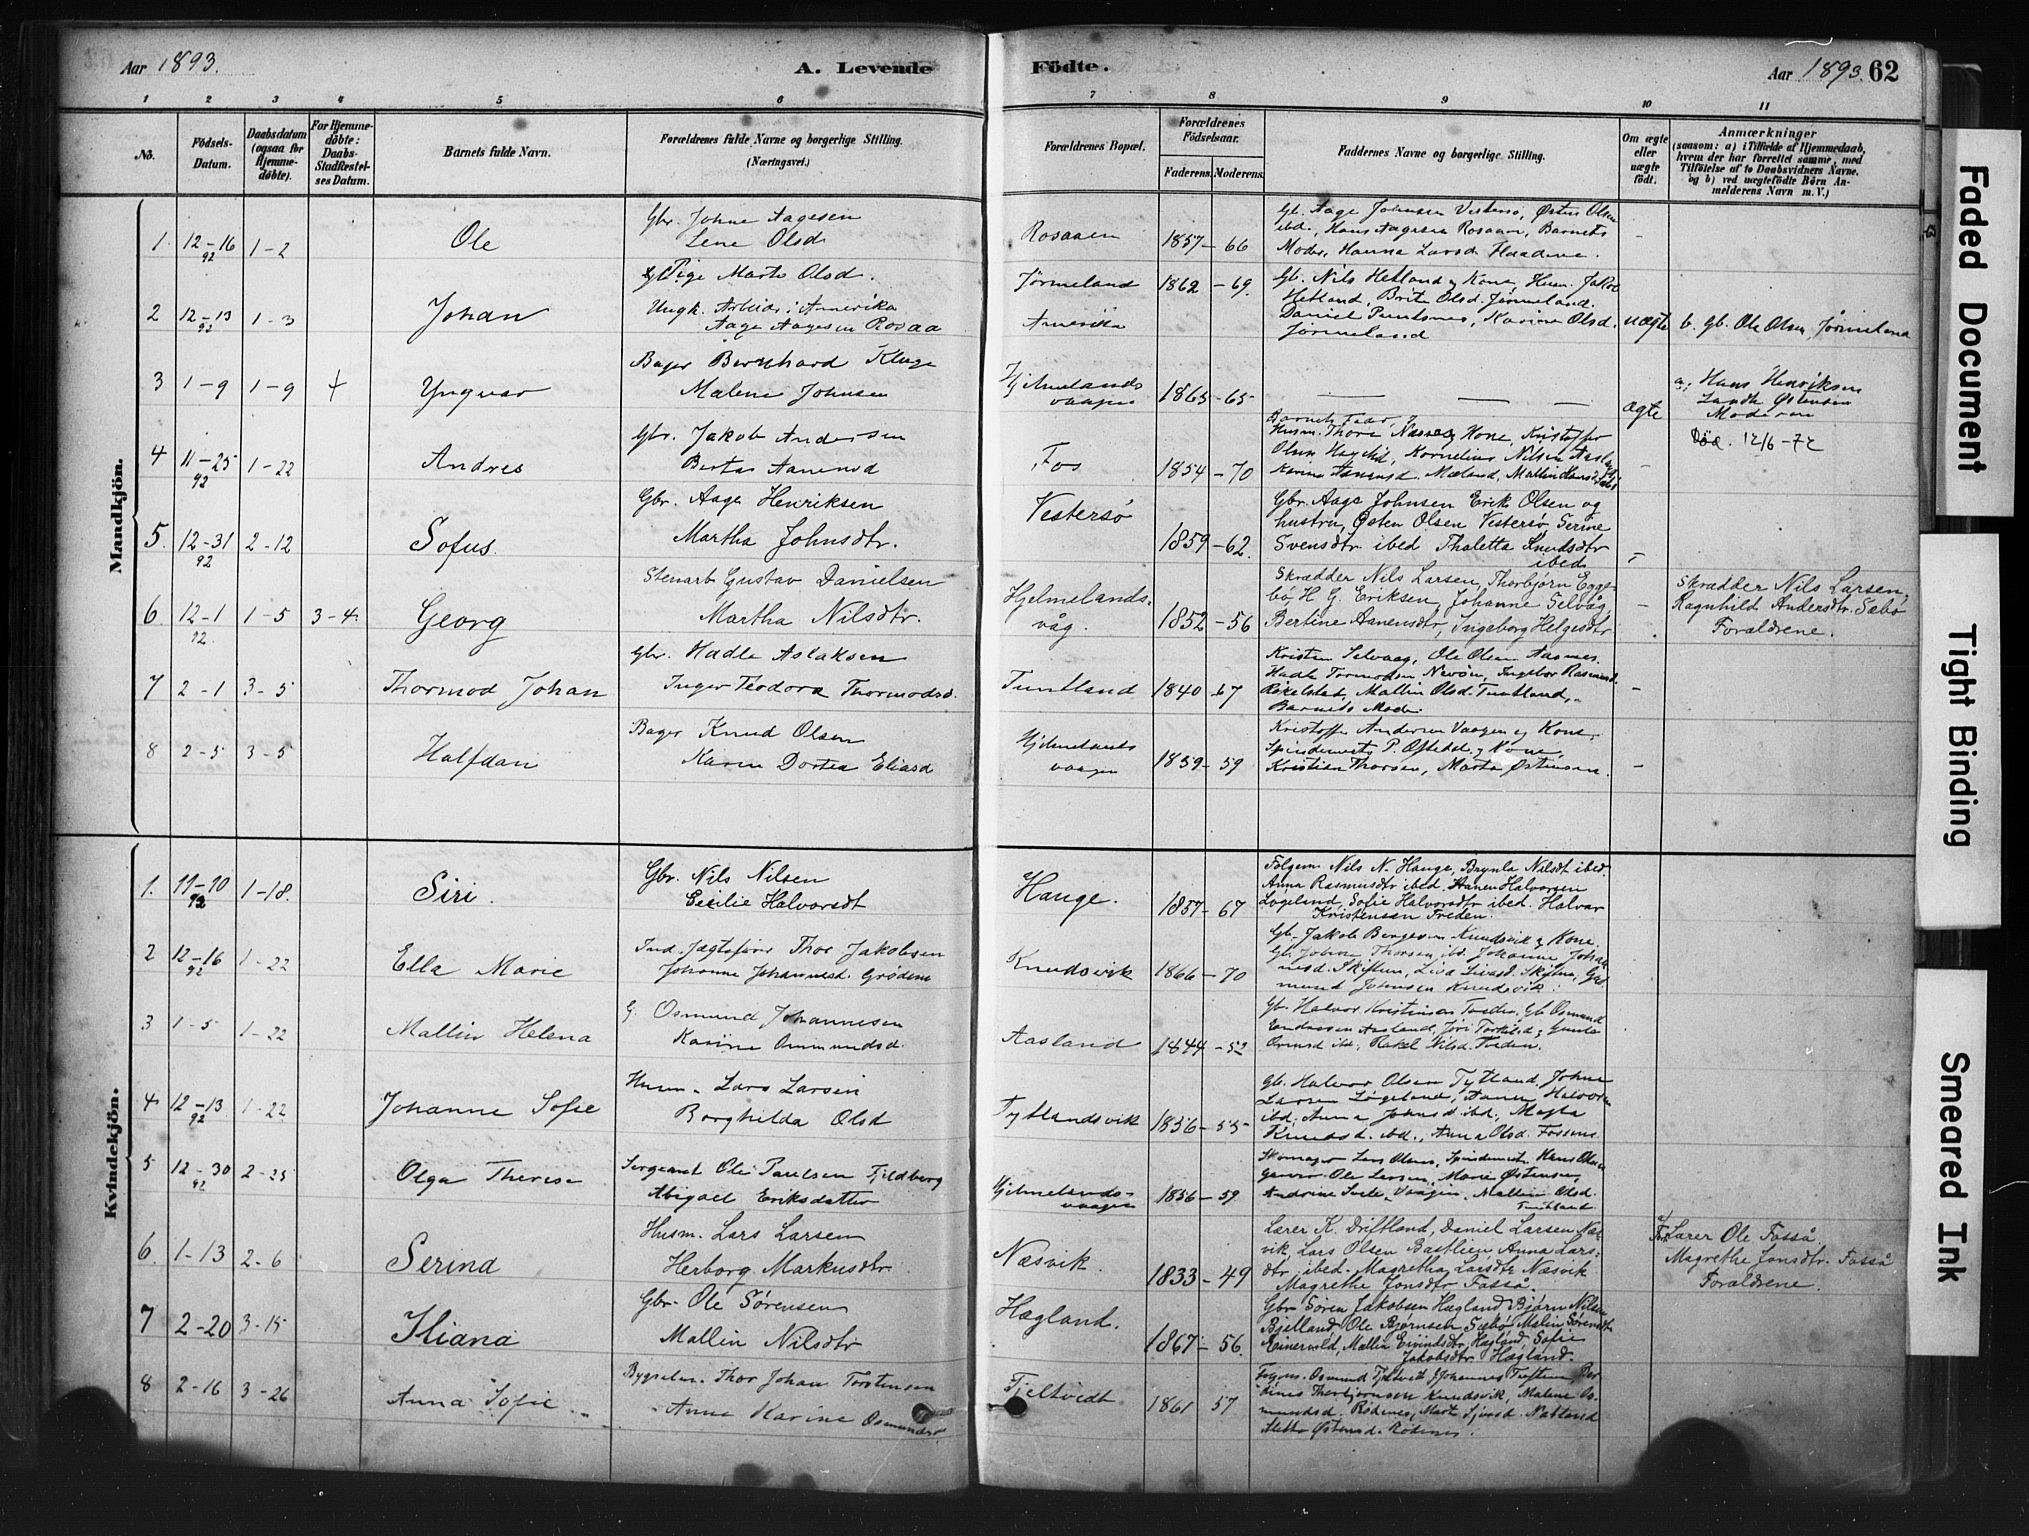 Aar 1893.
A. Levende Födte.
Aar 1893. 62
1 2 3 4 5 6 7 8 9 10 11
No.
Födsels-Datum.
Daabsdatum
(ogsaa for
Hjemme-
døbte).
For Hjemme-
døbte:
Daabs-
Stadfæstel-
ses Datum.
Barnets fulde Navn.
Forældrenes fulde Navne og borgerlige Stilling.
(Næringsvei.)
Forældrenes Bopæl.
Forældrenes
Födselsaar.
Faderens. Moderens.
Faddernes Navne og borgerlige Stilling.
Om ægte
eller
uægte
født.
Anmærkninger
(saasom: a) i Tilfælde af Hjemmedaab,
hvem der har forrettet samme, med
Tilføielse af to Daabsvidners Navne,
og b) ved uægtefødte Börn An-
melderens Navn m. V.)
Mandkjön.
1. 12-16 92 1-2 Ole
Gbr. Johne Aagesen
Lene Olsd.
Rosaaen 1857-66
Gb. Aage Johnsen Vestersø, Østen Olsen
ibd, Hans Aagesen Rosaaen, Barnets
Moder, Hanna Larsd.
2 12-13 92 1-3 Johan
Pige Marta Olsd.
Ungk. Arbeider i Amerika
Aage Aagesen Rosaa
Jørmeland
Amerika
1862-69.
Gb. Nils Hetland og Kone, Husm. Jakob
Hetland, Brite Olsd. Jørmeland.
Daniel, Karine Olsd.
Jørmeland
uægte b. Gb. Ole Olsen, Jørmeland
3 1-9 1-9 + Yngvar
Bager Bernhard Kluge
Malene Johnsen
Hjelmelands
vaagen
1865-65
ægte
a; Hans Henriksen
Østensen
Moderen
Død. 12/6-72
4 11-25 92 1-22 Andres
Gbr. Jakob Andersen
Berta
Fos 1854-70
Barnets Fader,
Husm. Thore og Kone, Kristoffer
Olsen, Kornelius Nilsen
5. 12-31 92 2-12 Sofus.
Gbr. Aage Henriksen
Martha Johnsdtr.
Vestersø 1859-62.
Gbr. Aage Johnsen Erik Olsen og
hustru, Østen Olsen Vestersø, Serine
Svensdtr ibed Thaletta Knudsdtr
ibed
6 12-1 12 1-5 3-4. Georg
Stenarb Gustav Danielsen
Martha Nilsdtr.
Hjelmelands-
våg. 1852-56
Skrædder Nils Larsen, Thorbjørn Egge-
bø, H G. Eriksen, Johanne Selvåg,
Bertine Aanensdtr, Ingeborg Helgesdtr
Skrædder Nils Larsen,
Ragnhild Andersdtr. Sæbø
Forældrene.
7 2-1 3-5 Thormod Johan
Gbr. Hadle Aslaksen
Inger Teodora Thormodsd.
Tuntland 1840-67
Kristen Selvaag, Ole Olsen Aasnes,
Hadle Tormodsen, Ingebor Rasmusd.
Mallin Olsd. Tuntland,
Barnets Moder.
8 2-5 3-5 Halfdan
Bager Knud Olsen
Karen Dortea Eliasd
Hjelmelands
vaagen 1859-59
Kristoffer Andersen Vaagen og Kone,
P. Oftedal og Kone,
Kristian Thorsen, Marta Østensen.
Kvindekjön.
1. 11-10 92 1-18. Siri.
Gbr. Nils Nilsen
Cecilie Halvorsdt
Hauge. 1857-67
Følgem Nils N. Hauge, Brynla Nilsdt ibed.
Anna Rasmusdtr ibed. Aanen Halvorsen
Løgeland, Sofie Halvorsdtr ibed. Halvor
Kristensen Treden.
2 12-16 92 1-22 Ella Marie
Ind. Jægtefører Thor Jakobsen
Johanne Johannesd. Grødem
Knudsvik 1866-70
Gb. Jakob Knudsvik og Kone.
Gb. Thorsen, ibd. Johanne Johan
nesd. Skiftun,
mund Johnsen Knudsvik.
3 1-5 1-22 Mallin Helena
G. Osmund Johannesen
Karine Ommundsd.
Aasland 1844-52
Gb. Halvor Kristensen Treden, Gb Osmund
Aasland,
ibd, Rakel Nilsd. Treden.
4. 12-13 92 1-22 Johanne Sofie
Husm. Lars Larsen
Borghilda Olsd
Tytlandsvik 1856-55
Gb. Halvor Olsen Tytland, Johne
Larsen Løgeland, Aanen Halvorsen
ibd, Anna Johnsd ibd, Magta
Knudsd. ibd., Anna Olsd. Fossene
5 12-30 92 2-25 Olga Therese
Sergeant Ole Paulsen Fjeldberg
Abigael Eriksdatter
Hjelmelands-
vaagen 1856-59
Skomager Lars Olsen, Hans Olsen
Garver Ole Larsen, Marie Østensen,
Andrine, Vaagen, Mallin Olsd.
Tuntland
6. 1-13 2-6 Serina
Husm. Lars Larsen
Herborg Markusdtr.
Næsvik. 1833-49
Lærer K. Driftland, Daniel Larsen Næs-
vik, Lars Olsen Bastlien, Anna Lars-
dtr ibed. Magretha Larsdtr Næsvik
Magrethe Jonsdtr Fasså.
Lærer Ole Fasså.
Magrethe Jonsdtr. Fasså
Forældrene.
7 2-20 3-15 Iliana
Gbr. Ole Sørensen
Mallin Nilsdtr
Hægland. 1867-56.
Gbr Søren Jakobsen Hægland, Bjørn Nilsen
Bjelland, Ole Bjørnsen Sæbø, Malin Sørensdtr
Einervold, Mallin Eivindsdtr Hægland, Sofie
Jakobsdtr Hægland.
8 2-16 3-26 Anna Sofie
Bygselm. Thor Johan Torstensen
Anna Karine Osmundsd
Fjeltvedt 1861 57
Osmund Fjeltvedt, Johannes Tuftene,
Thorbjørnsen Knudsvik, Malene Os-
mundsd. Rødenes,
Østensd. Rødenes.
Faded Document
Tight Binding
Smeared Ink